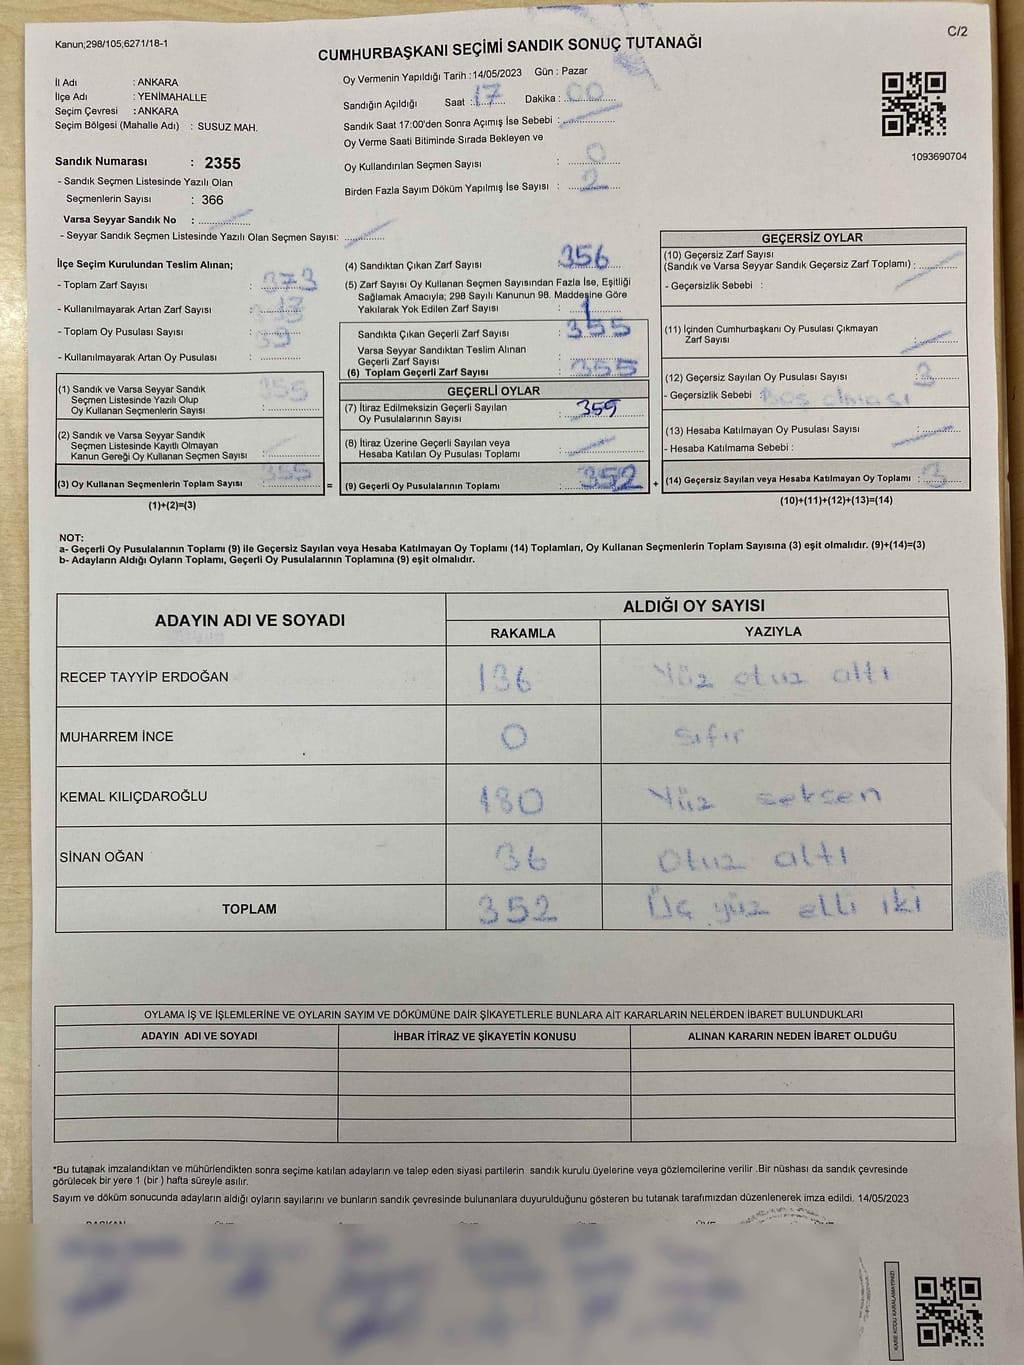 Kanun;298/105;6271/18-1
C/2
CUMHURBAŞKANI SEÇİMİ SANDIK SONUÇ TUTANAĞI
İl Adı : ANKARA
İlçe Adı : YENİMAHALLE
Seçim Çevresi : ANKARA
Seçim Bölgesi (Mahalle Adı) : SUSUZ MAH.
Oy Vermenin Yapıldığı Tarih :14/05/2023 Gün : Pazar
Sandığın Açıldığı Saat : 17 Dakika : 00
Sandık Saat 17:00'den Sonra Açımış İse Sebebi :
Oy Verme Saati Bitiminde Sırada Bekleyen ve
Oy Kullandırılan Seçmen Sayısı : 0
Birden Fazla Sayım Döküm Yapılmış İse Sayısı : 2
1093690704
Sandık Numarası : 2355
- Sandık Seçmen Listesinde Yazılı Olan
Seçmenlerin Sayısı : 366
Varsa Seyyar Sandık No :
- Seyyar Sandık Seçmen Listesinde Yazılı Olan Seçmen Sayısı:
İlçe Seçim Kurulundan Teslim Alınan;
- Toplam Zarf Sayısı : 373
- Kullanılmayarak Artan Zarf Sayısı :
- Toplam Oy Pusulası Sayısı :
- Kullanılmayarak Artan Oy Pusulası :
(1) Sandık ve Varsa Seyyar Sandık
Seçmen Listesinde Yazılı Olup
Oy Kullanan Seçmenlerin Sayısı : 355
(2) Sandık ve Varsa Seyyar Sandık
Seçmen Listesinde Kayıtlı Olmayan
Kanun Gereği Oy Kullanan Seçmen Sayısı :
(3) Oy Kullanan Seçmenlerin Toplam Sayısı : 355
(1)+(2)=(3)
=
(4) Sandıktan Çıkan Zarf Sayısı : 356
(5) Zarf Sayısı Oy Kullanan Seçmen Sayısından Fazla İse, Eşitliği
Sağlamak Amacıyla; 298 Sayılı Kanunun 98. Maddesine Göre
Yakılarak Yok Edilen Zarf Sayısı : 1
Sandıkta Çıkan Geçerli Zarf Sayısı : 355
Varsa Seyyar Sandıktan Teslim Alınan
Geçerli Zarf Sayısı
(6) Toplam Geçerli Zarf Sayısı : 355
GEÇERLİ OYLAR
(7) İtiraz Edilmeksizin Geçerli Sayılan
Oy Pusulalarının Sayısı :
(8) İtiraz Üzerine Geçerli Sayılan veya
Hesaba Katılan Oy Pusulası Toplamı :
(9) Geçerli Oy Pusulalarının Toplamı : 352
+
GEÇERSİZ OYLAR
(10) Geçersiz Zarf Sayısı
(Sandık ve Varsa Seyyar Sandık Geçersiz Zarf Toplamı) :
- Geçersizlik Sebebi :
(11) İçinden Cumhurbaşkanı Oy Pusulası Çıkmayan
Zarf Sayısı :
(12) Geçersiz Sayılan Oy Pusulası Sayısı : 3
- Geçersizlik Sebebi : Boş olması
(13) Hesaba Katılmayan Oy Pusulası Sayısı :
- Hesaba Katılmama Sebebi :
(14) Geçersiz Sayılan veya Hesaba Katılmayan Oy Toplamı : 3
(10)+(11)+(12)+(13)=(14)
NOT:
a- Geçerli Oy Pusulalarının Toplamı (9) ile Geçersiz Sayılan veya Hesaba Katılmayan Oy Toplamı (14) Toplamları, Oy Kullanan Seçmenlerin Toplam Sayısına (3) eşit olmalıdır. (9)+(14)=(3)
b- Adayların Aldığı Oyların Toplamı, Geçerli Oy Pusulalarının Toplamına (9) eşit olmalıdır.
ADAYIN ADI VE SOYADI
ALDIĞI OY SAYISI
RAKAMLA YAZIYLA
RECEP TAYYİP ERDOĞAN 136 Yüz otuz altı
MUHARREM İNCE 0 sıfır
KEMAL KILIÇDAROĞLU 180 Yüz seksen
SİNAN OĞAN 36 Otuz altı
TOPLAM 352 Üç yüz elli iki
OYLAMA İŞ VE İŞLEMLERİNE VE OYLARIN SAYIM VE DÖKÜMÜNE DAİR ŞİKAYETLERLE BUNLARA AİT KARARLARIN NELERDEN İBARET BULUNDUKLARI
ADAYIN ADI VE SOYADI İHBAR İTİRAZ VE ŞİKAYETİN KONUSU ALINAN KARARIN NEDEN İBARET OLDUĞU
*Bu tutanak imzalandıktan ve mühürlendikten sonra seçime katılan adayların ve talep eden siyasi partilerin sandık kurulu üyelerine veya gözlemcilerine verilir .Bir nüshası da sandık çevresinde
görülecek bir yere 1 (bir ) hafta süreyle asılır.
Sayım ve döküm sonucunda adayların aldığı oyların sayılarını ve bunların sandık çevresinde bulunanlara duyurulduğunu gösteren bu tutanak tarafımızdan düzenlenerek imza edildi. 14/05/2023
KARE KODU KARALAMAYINIZ!